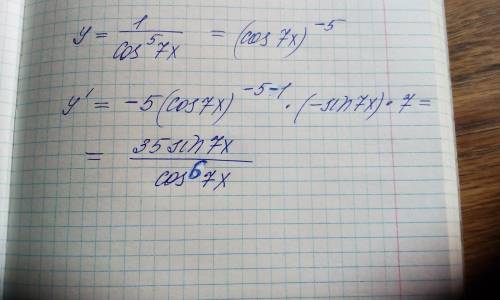 y = 1/cos⁵7x = (cos7x)⁻⁵
y' = -5(cos7x)⁻⁵⁻¹ · (-sin7x) · 7 =
= 35sin7x/cos⁶7x